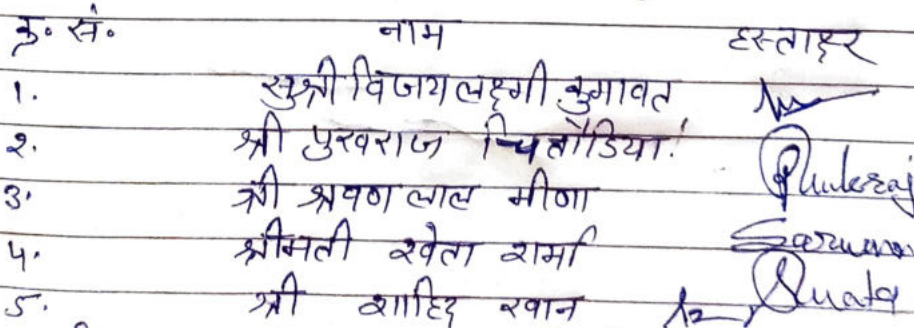 क्र. सं. नाम हस्ताक्षर
1. सुश्री विजय लक्ष्मी कुमावत
2. श्री पुखराज चितौडिया Pukhraj
3. श्री श्रवण लाल मीणा
4. श्रीमती श्वेता शर्मा
5. श्री शाहिद खान